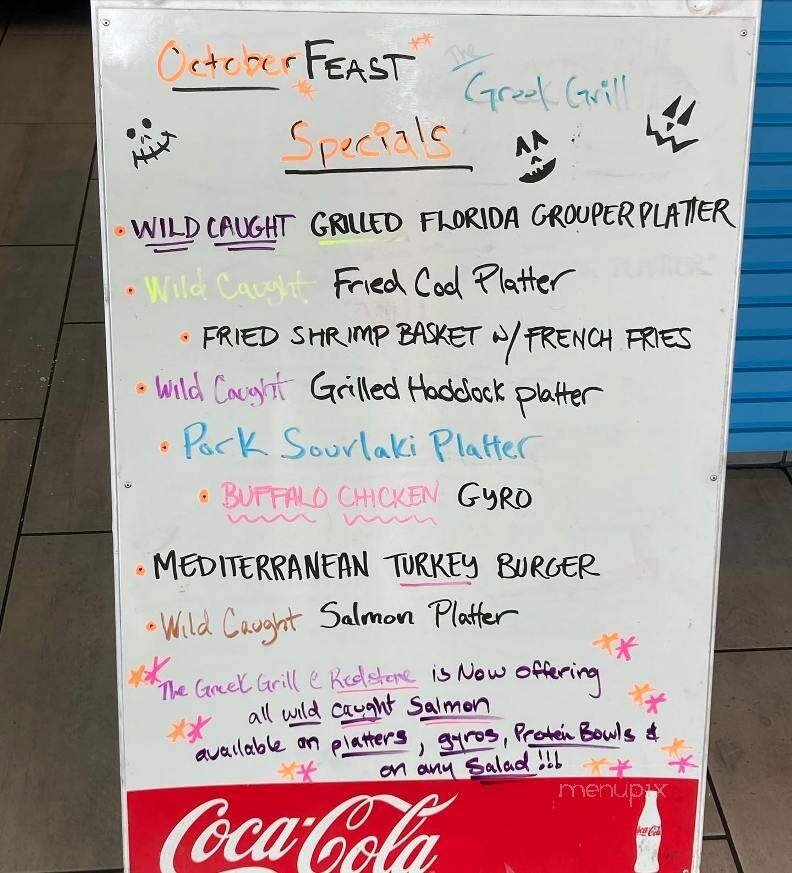 October FEAST
The
Greek Grill
Specials
• WILD CAUGHT GRILLED FLORIDA GROUPER PLATTER
• Wild Caught Fried Cod Platter
• FRIED SHRIMP BASKET W/ FRENCH FRIES
• Wild Caught Grilled Haddock platter
• Pork Sourlaki Platter
• BUFFALO CHICKEN GYRO
• MEDITERRANEAN TURKEY BURGER
• Wild Caught Salmon Platter
The Greek Grill @ Redstone is Now offering
all wild caught Salmon
available on platters, gyros, Protein Bowls &
on any Salad!!!
menupix
Coca-Cola
Coca-Cola